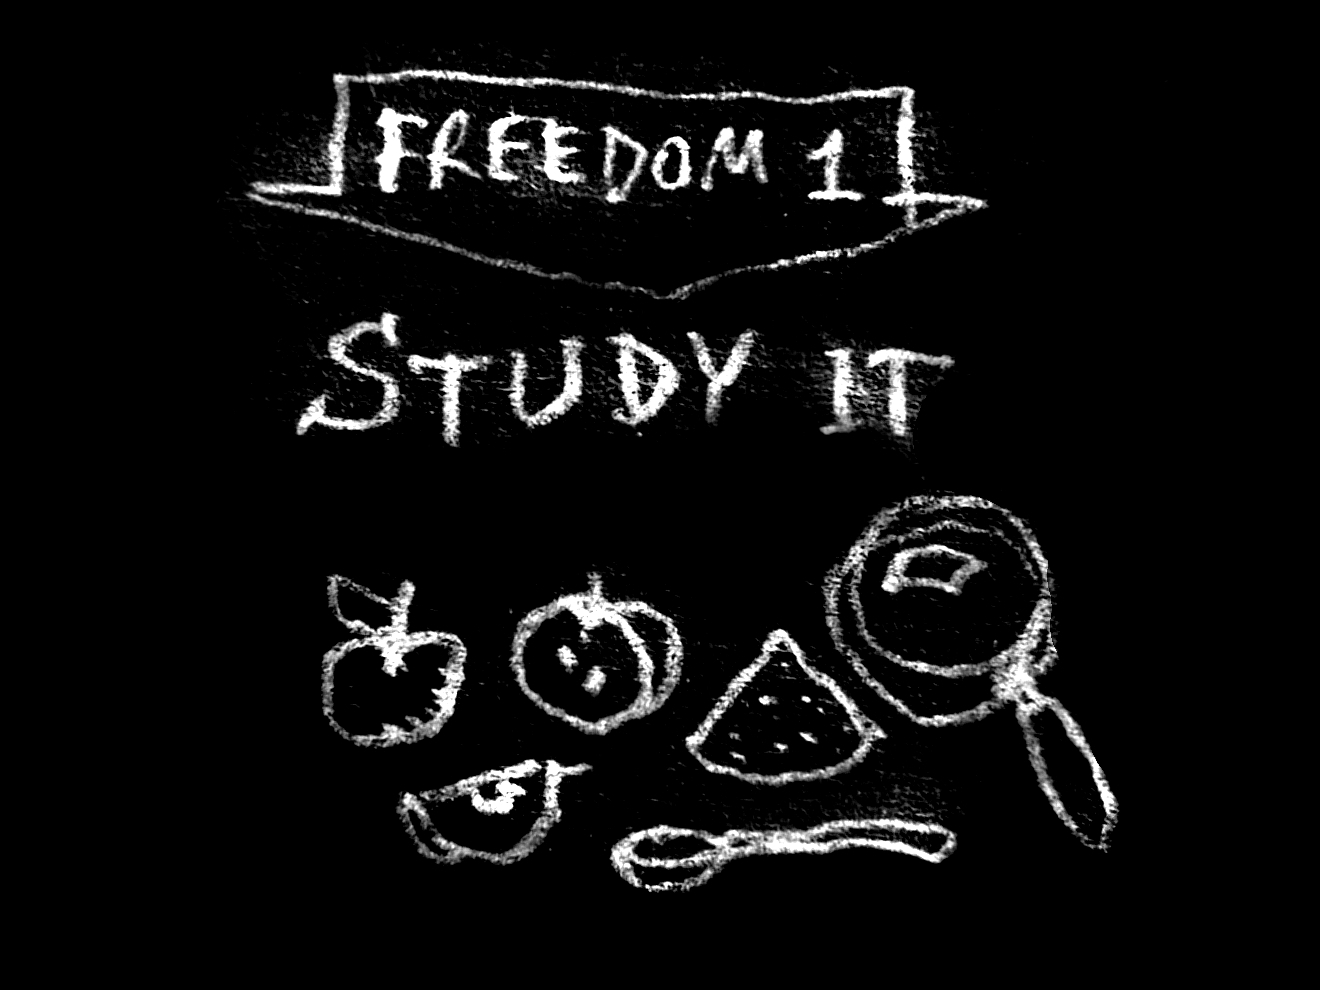 FREEDOM 1
STUDY IT